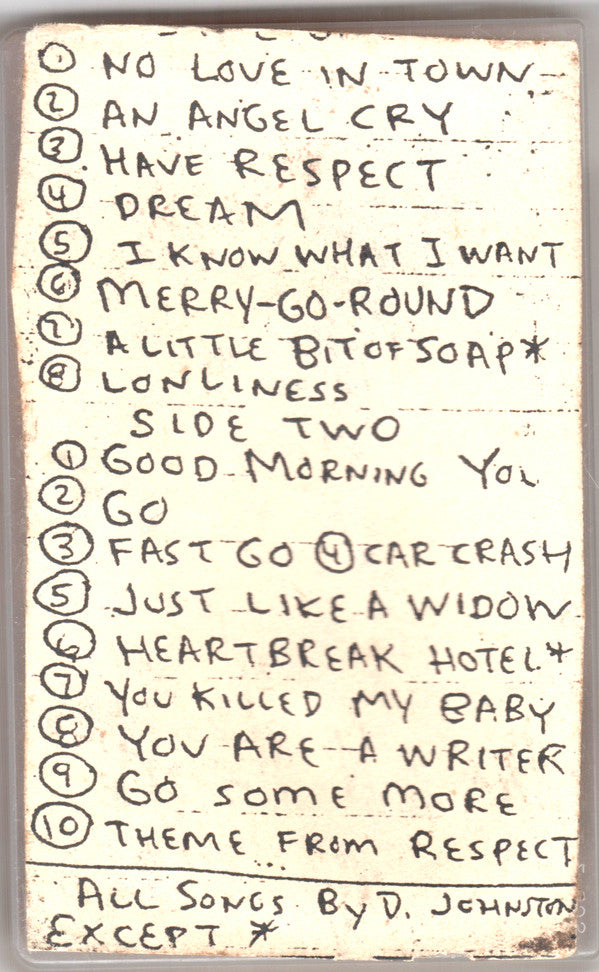 ① NO LOVE IN TOWN
② AN ANGEL CRY
③ HAVE RESPECT
④ DREAM
⑤ I KNOW WHAT I WANT
⑥ MERRY-GO-ROUND
⑦ A LITTLE BIT OF SOAP*
⑧ LONLINESS
SIDE TWO
① GOOD MORNING YOU
② GO
③ FAST GO ④ CAR CRASH
⑤ JUST LIKE A WIDOW
⑥ HEARTBREAK HOTEL*
⑦ YOU KILLED MY BABY
⑧ YOU ARE A WRITER
⑨ GO SOME MORE
⑩ THEME FROM RESPECT
ALL SONGS BY D. JOHNSTON
EXCEPT *